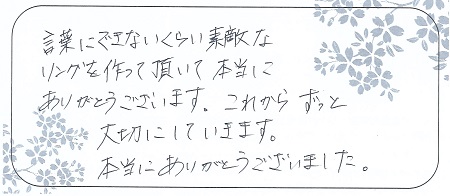 言葉にできないくらい素敵な
リングを作って頂いて本当に
ありがとうございます。これからずっと
大切にしていきます。
本当にありがとうございました。